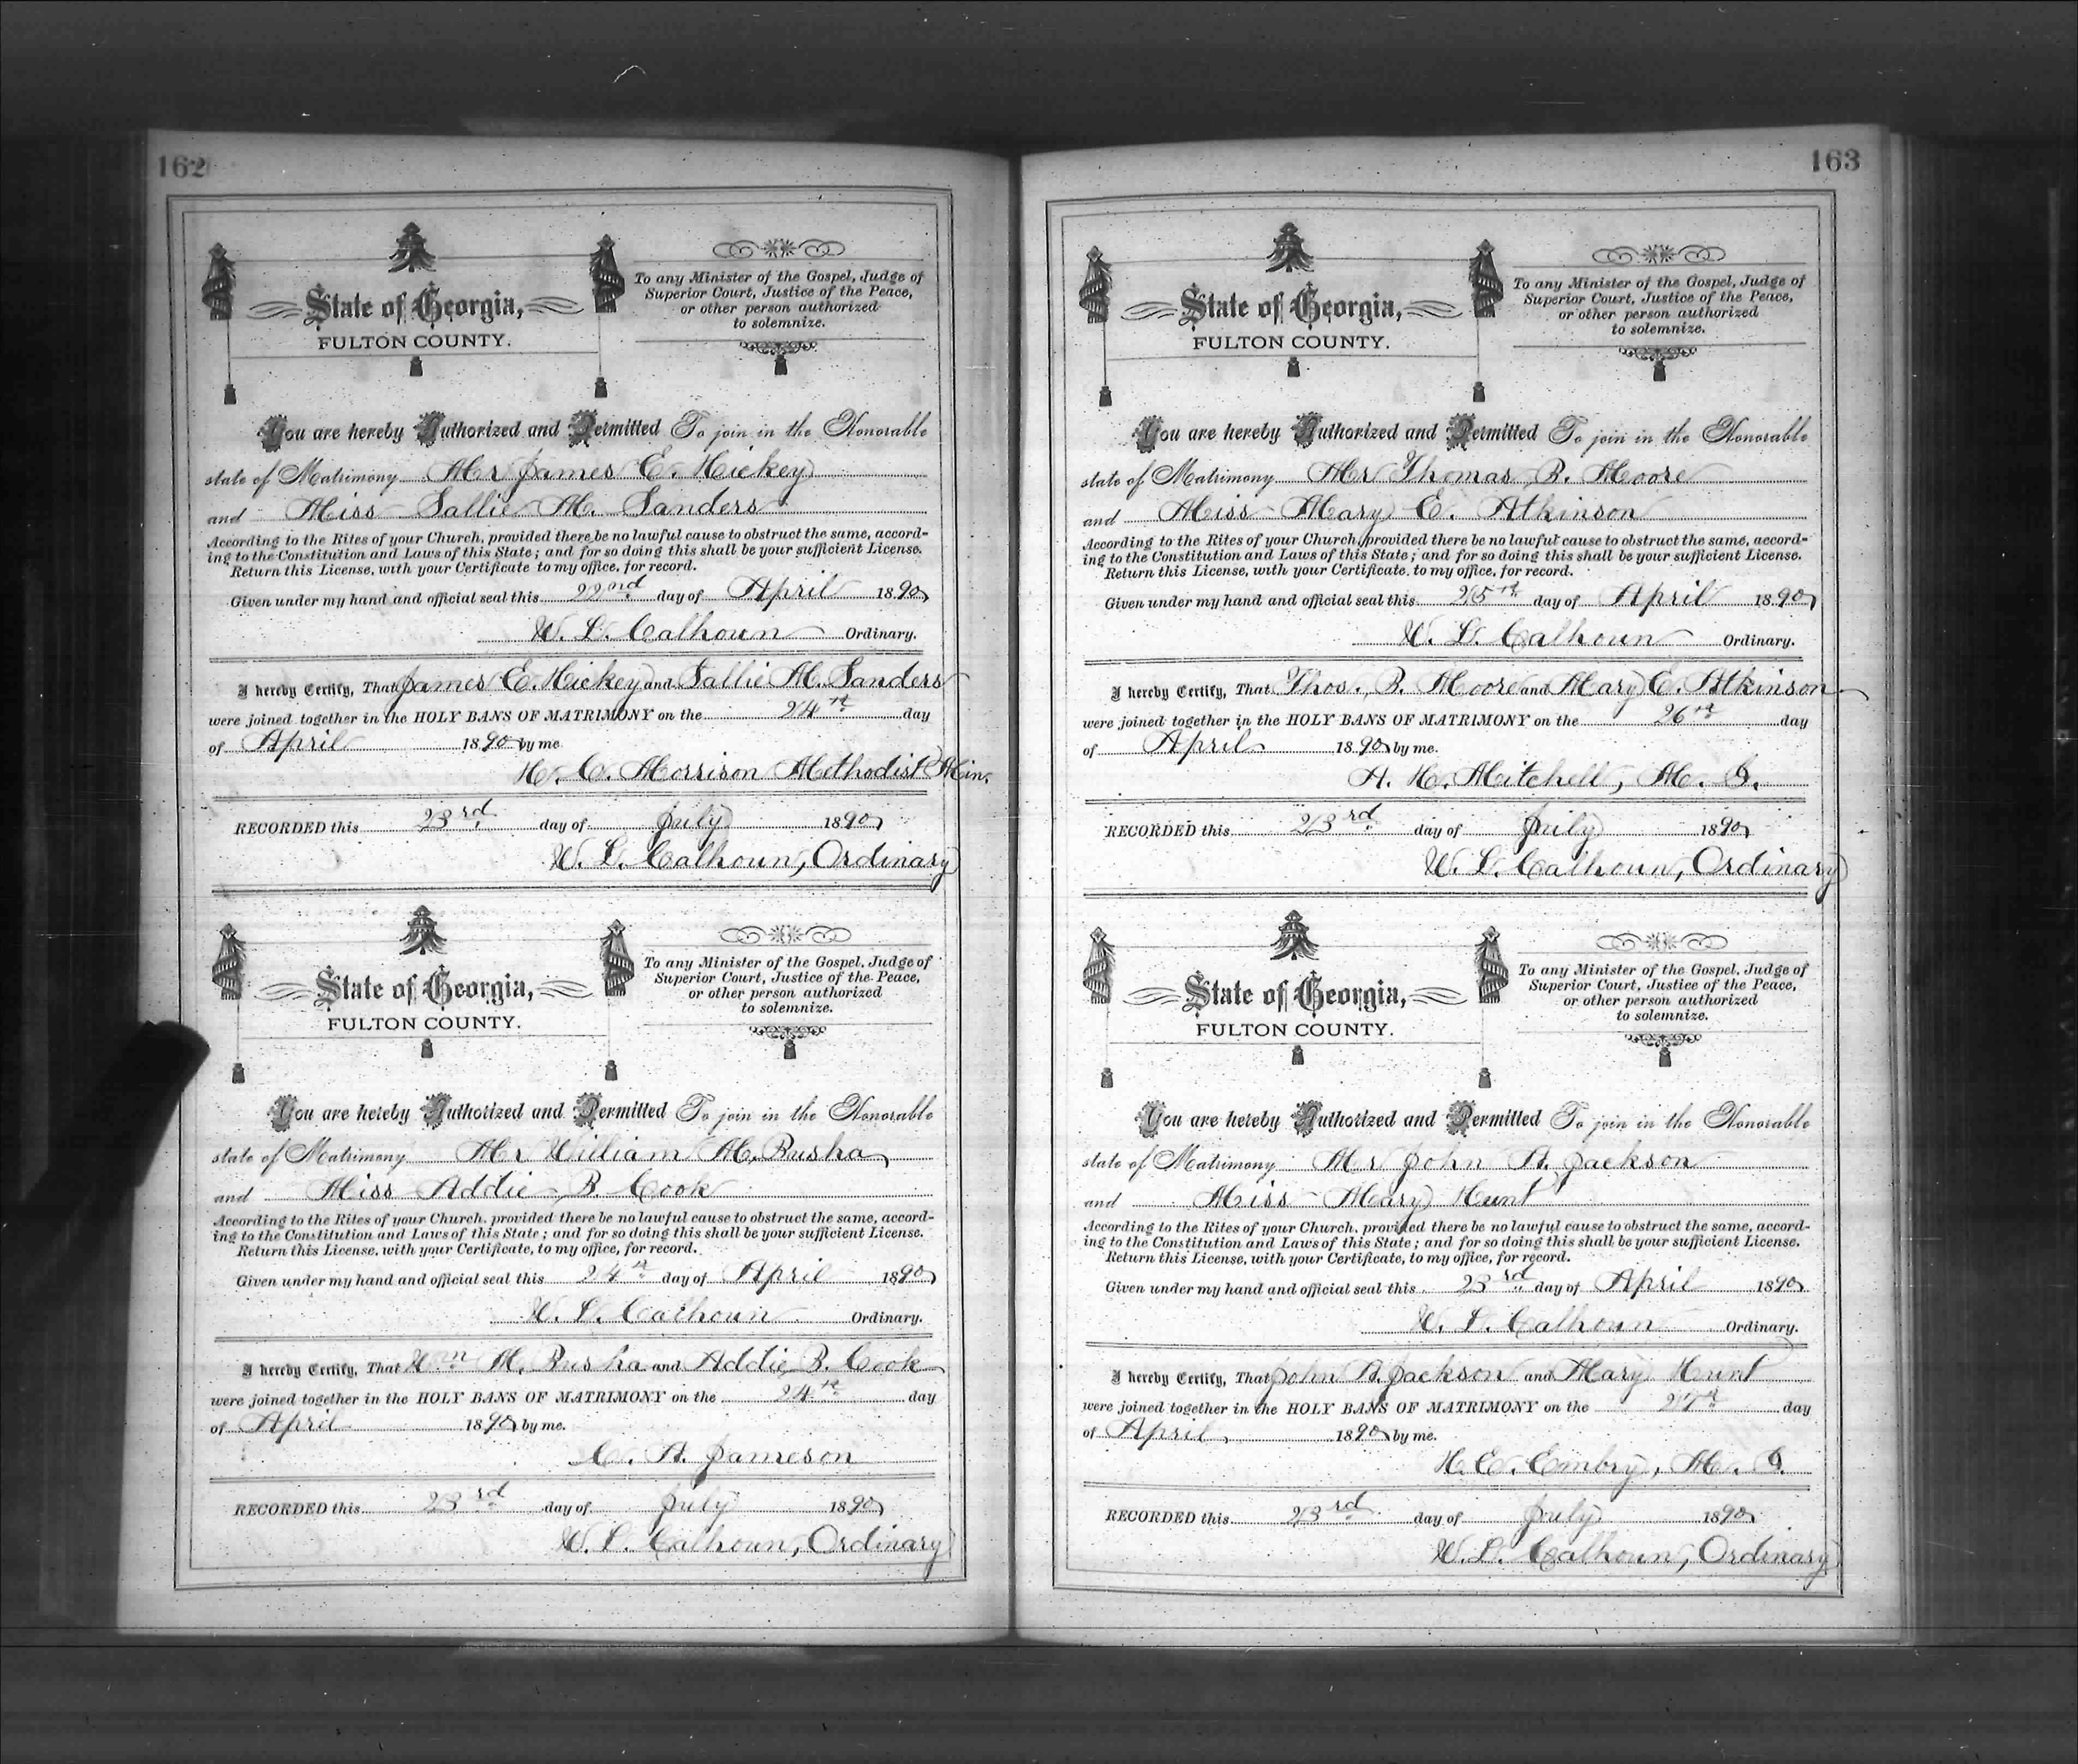 162
State of Georgia,
FULTON COUNTY.
To any Minister of the Gospel, Judge of
Superior Court, Justice of the Peace,
or other person authorized
to solemnize.
You are hereby Authorized and Permitted To join in the Honorable
state of Matrimony Mr James E. Hickey
and Miss Sallie M. Sanders
According to the Rites of your Church, provided there be no lawful cause to obstruct the same, accord-
ing to the Constitution and Laws of this State; and for so doing this shall be your sufficient License.
Return this License, with your Certificate to my office, for record.
Given under my hand and official seal this 22nd day of April 1890
W. L. Calhoun Ordinary.
I hereby Certify, That James E. Hickey and Sallie M. Sanders
were joined together in the HOLY BANS OF MATRIMONY on the 24th day
of April 1890 by me
H. C. Morrison Methodist Min.
RECORDED this 23rd day of July 1890
W. L. Calhoun, Ordinary
State of Georgia,
FULTON COUNTY.
To any Minister of the Gospel, Judge of
Superior Court, Justice of the Peace,
or other person authorized
to solemnize.
You are hereby Authorized and Permitted To join in the Honorable
state of Matrimony Mr William M. Busha
and Miss Addie B. Cook
According to the Rites of your Church, provided there be no lawful cause to obstruct the same, accord-
ing to the Constitution and Laws of this State; and for so doing this shall be your sufficient License.
Return this License, with your Certificate, to my office, for record.
Given under my hand and official seal this 24th day of April 1890
W. L. Calhoun Ordinary.
I hereby Certify, That Wm M. Busha and Addie B. Cook
were joined together in the HOLY BANS OF MATRIMONY on the 24th day
of April 1890 by me.
C. A. Jameson
RECORDED this 23rd day of July 1890
W. L. Calhoun, Ordinary
163
State of Georgia,
FULTON COUNTY.
To any Minister of the Gospel, Judge of
Superior Court, Justice of the Peace,
or other person authorized
to solemnize.
You are hereby Authorized and Permitted To join in the Honorable
state of Matrimony Mr Thomas B. Moore
and Miss Mary E. Atkinson
According to the Rites of your Church, provided there be no lawful cause to obstruct the same, accord-
ing to the Constitution and Laws of this State; and for so doing this shall be your sufficient License.
Return this License, with your Certificate, to my office, for record.
Given under my hand and official seal this 25th day of April 1890
W. L. Calhoun Ordinary.
I hereby Certify, That Thos. B. Moore and Mary E. Atkinson
were joined together in the HOLY BANS OF MATRIMONY on the 26th day
of April 1890 by me.
A. H. Mitchell, M. G.
RECORDED this 23rd day of July 1890
W. L. Calhoun, Ordinary
State of Georgia,
FULTON COUNTY.
To any Minister of the Gospel, Judge of
Superior Court, Justice of the Peace,
or other person authorized
to solemnize.
You are hereby Authorized and Permitted To join in the Honorable
state of Matrimony Mr John A. Jackson
and Miss Mary Hunt
According to the Rites of your Church, provided there be no lawful cause to obstruct the same, accord-
ing to the Constitution and Laws of this State; and for so doing this shall be your sufficient License.
Return this License, with your Certificate, to my office, for record.
Given under my hand and official seal this 23rd day of April 1890
W. L. Calhoun Ordinary.
I hereby Certify, That John A. Jackson and Mary Hunt
were joined together in the HOLY BANS OF MATRIMONY on the 27th day
of April 1890 by me.
H. E. Embry, M. G.
RECORDED this 23rd day of July 1890
W. L. Calhoun, Ordinary